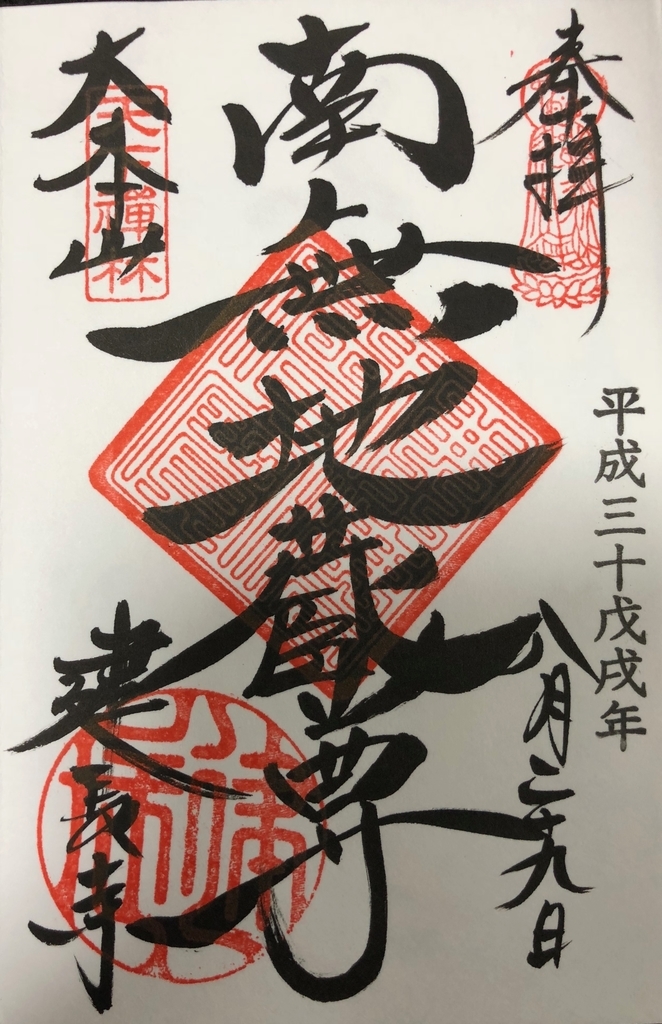 奉拝
平成三十戊戌年
八月二十九日
南無地蔵尊
大本山
建長寺